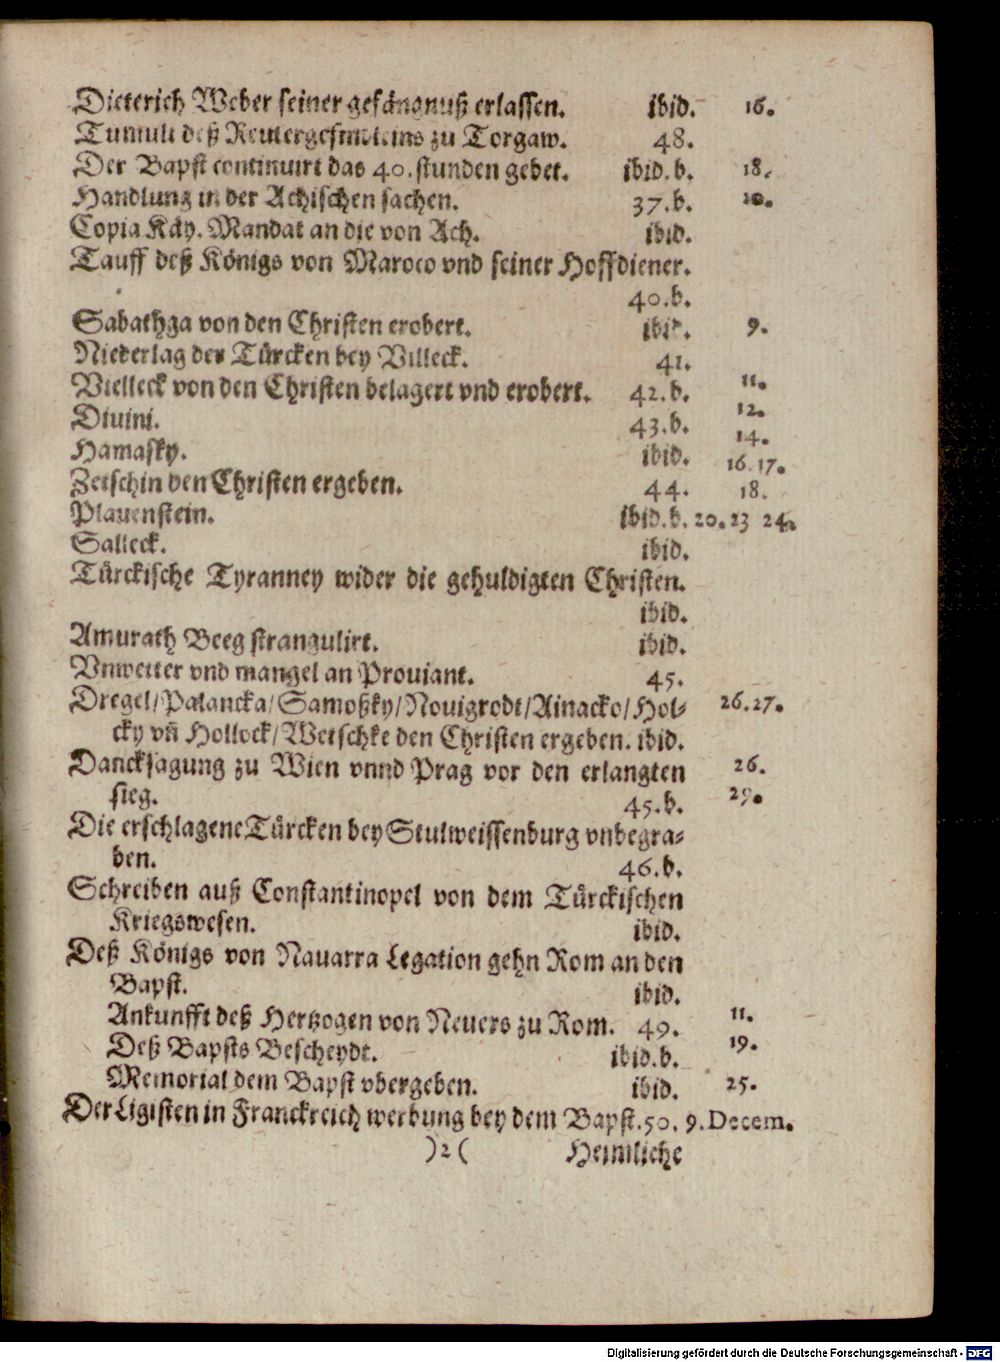 Dieterich Weber seiner gefängnuß erlassen. ibid. 16.
Tumult deß Reutergesindleins zu Torgaw. 48.
Der Bapst continuirt das 40. stunden gebet. ibid. b. 18.
Handlung in der Achischen sachen. 37. b. 20.
Copia Käy. Mandat an die von Ach. ibid.
Tauff deß Königs von Maroco vnd seiner Hoffdiener.
40. b.
Sabathga von den Christen erobert. ibid. 9.
Niederlag der Türcken bey Villeck. 41.
Vielleck von den Christen belagert vnd erobert. 42. b. 11.
Diuini. 43. b. 12.
14.
Hamasky. ibid. 16. 17.
Zetschin den Christen ergeben. 44. 18.
Plauenstein. ibid. b. 20. 23 24.
Salleck. ibid.
Türckische Tyranney wider die gehuldigten Christen.
ibid.
Amurath Beeg strangulirt. ibid.
Vnwetter vnd mangel an Prouiant. 45.
Dregel/Palancka/Samoßky/Nouigrodt/Ainacko/Hol- 26. 27.
cky vñ Hollock/Wetschke den Christen ergeben. ibid.
Dancksagung zu Wien vnnd Prag vor den erlangten 26.
sieg. 45. b. 29.
Die erschlagene Türcken bey Stulweissenburg vnbegra-
ben. 46. b.
Schreiben auß Constantinopel von dem Türckischen
Kriegswesen. ibid.
Deß Königs von Nauarra Legation gehn Rom an den
Bapst. ibid.
Ankunfft deß Hertzogen von Neuers zu Rom. 49. 11.
Deß Bapsts Bescheydt. ibid. b. 19.
Memorial dem Bapst vbergeben. ibid. 25.
Der Ligisten in Franckreich werbung bey dem Bapst. 50. 9. Decem.
)2( Heimliche
Digitalisierung gefördert durch die Deutsche Forschungsgemeinschaft - DFG